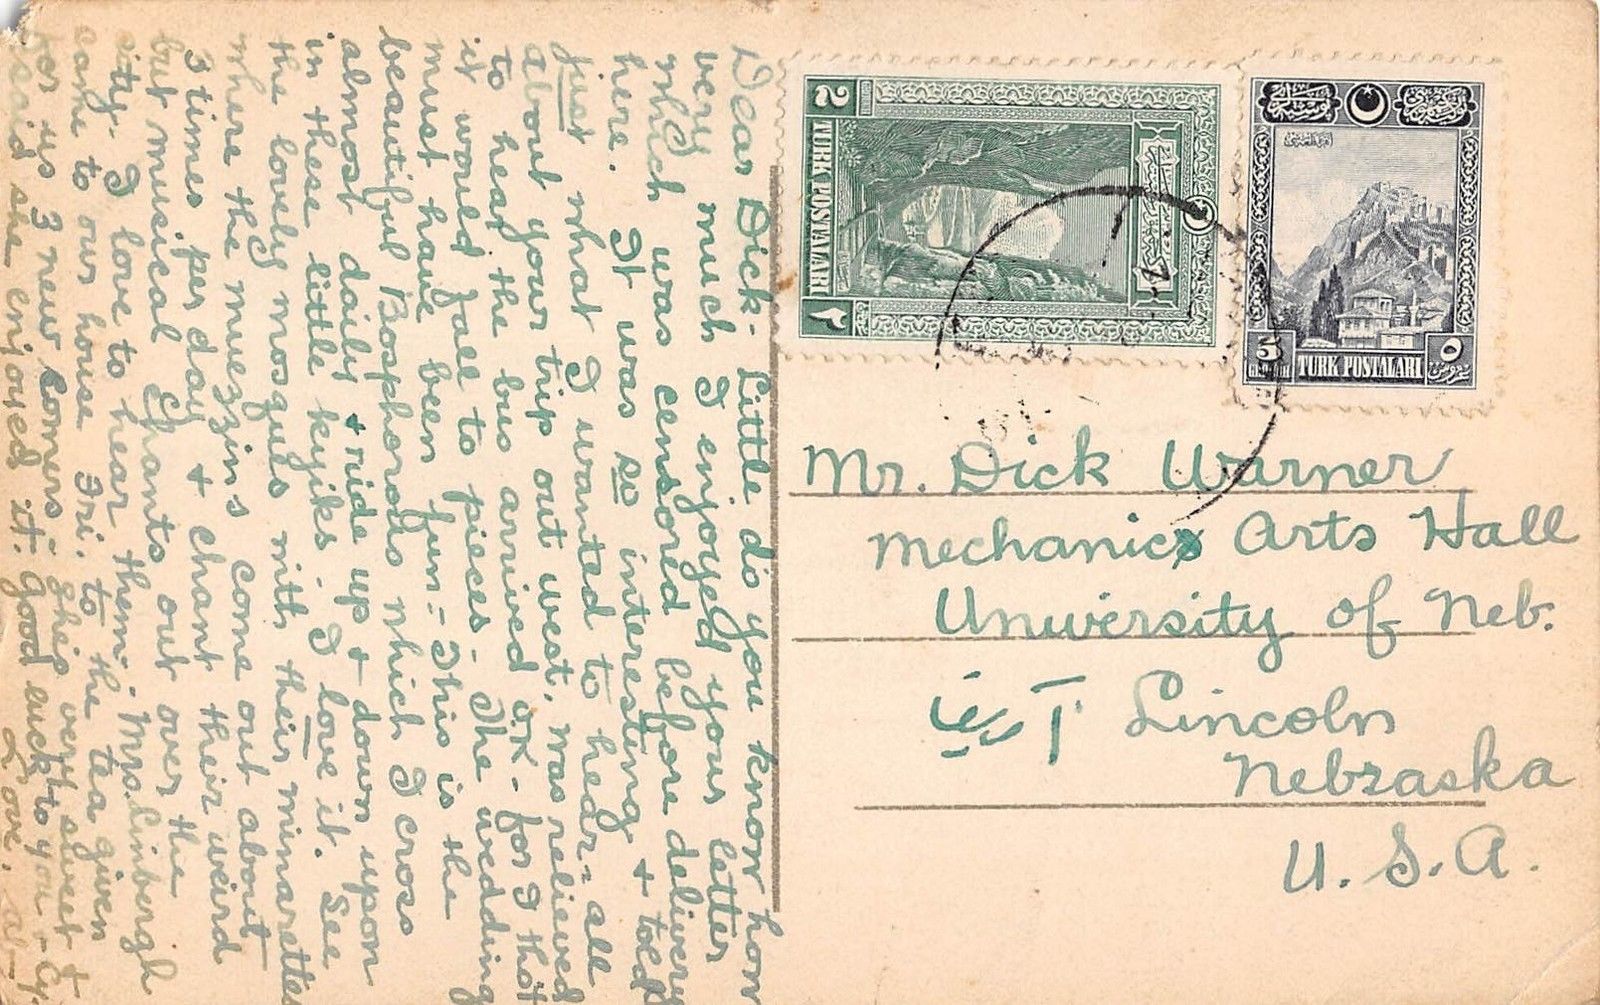 Dear Dick - Little do you know how
very much I enjoyed your letter
which was censored before delivery
here. It was so interesting & told
just what I wanted to hear - all
about your trip out west, was relieved
to hear the bus arrived O.K. - for I thot
it would fall to pieces - The wedding
must have been fun - This is the
beautiful Bosphorous which I cross
almost daily & ride up & down upon
in these little kyiks - I love it. See
the lovely mosques with their minarettes
where the muezzins come out about
3 times per day & chant their weird
but musical chants out over the
city. I love to hear them. Mrs. Linbergh
came to our house Fri. to the tea given
for us 3 new comers - She's very sweet &
said she enjoyed it. Good luck to you -
Love,
TÜRK POSTALARI
2
٢
TÜRK POSTALARI
5
٥
غروش
Mr. Dick Warner
Mechanics Arts Hall
University of Neb.
Lincoln
Nebraska
U.S.A.